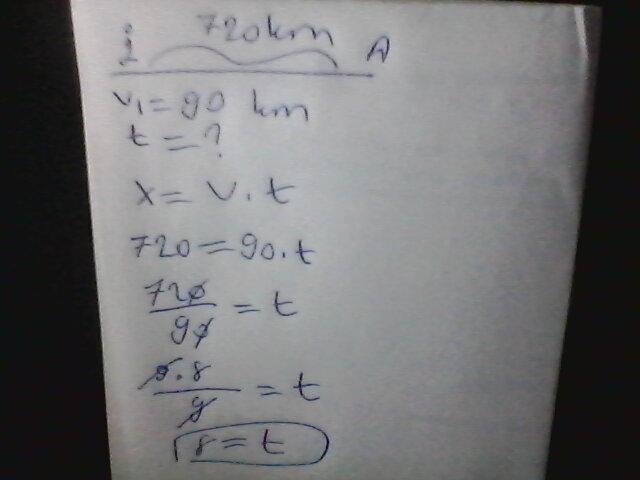 İ 720km A
V₁ = 90 km
t = ?
X = V . t
720 = 90.t
720/90 = t
9.8/9 = t
8 = t